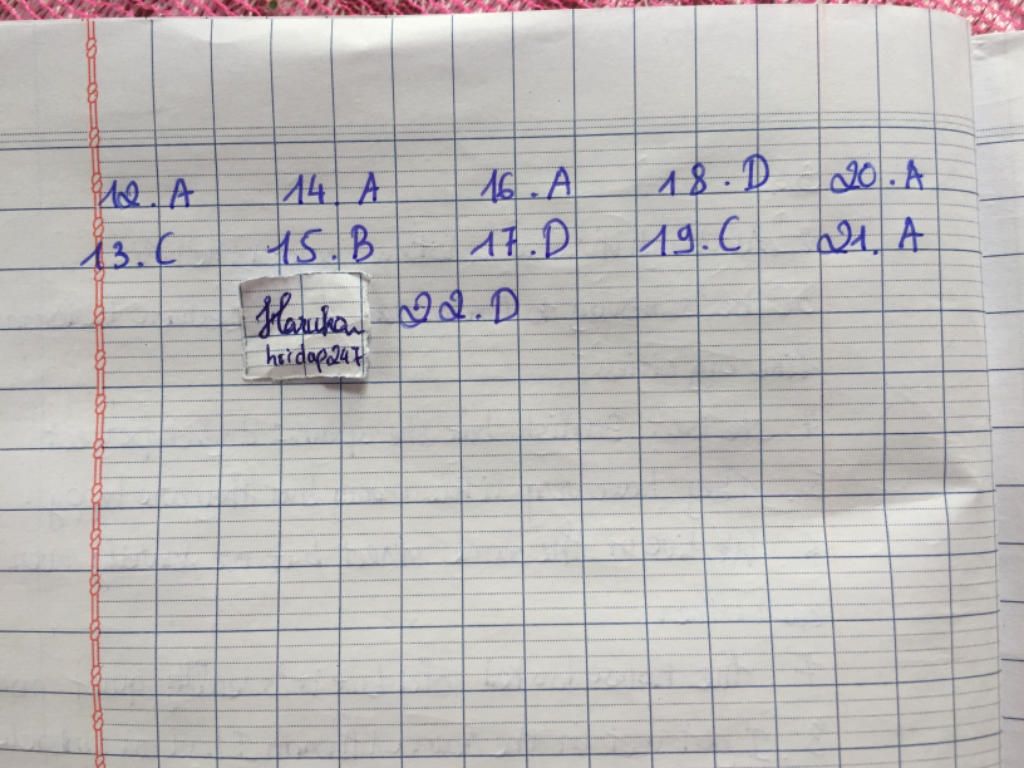 12. A 14. A 16. A 18. D 20. A
13. C 15. B 17. D 19. C 21. A
22. D
Haruka
hridap247